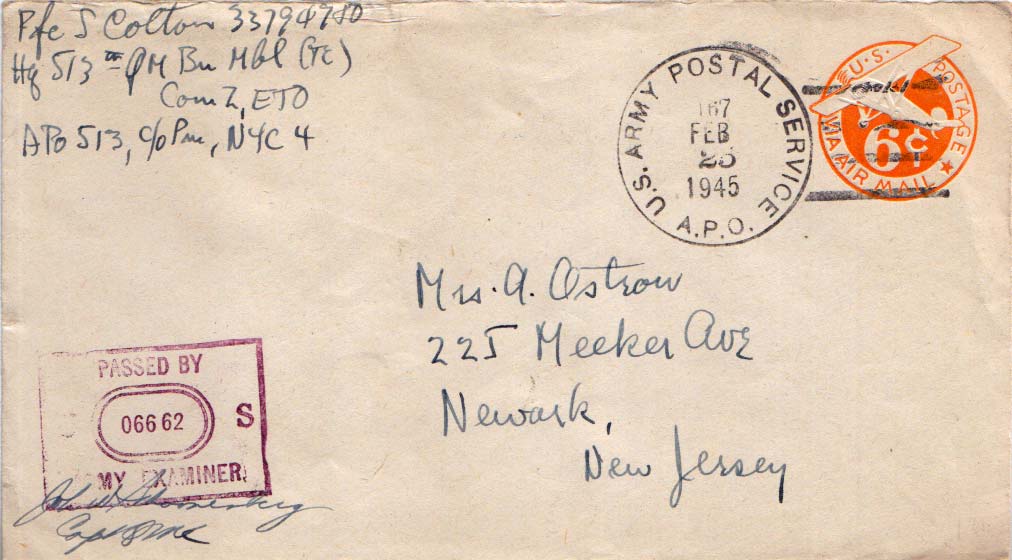 Pfc S Colton 33794780
Hq 513 QM Bn Mbl (Tc)
Com Z, ETO
APO 513, c/o Pm, NYC 4
U.S. ARMY POSTAL SERVICE
167
FEB
25
1945
A.P.O.
U.S. POSTAGE
6¢
VIA AIR MAIL
Mrs. A. Ostrow
225 Meeker Ave
Newark,
New Jersey
PASSED BY
06662 S
MY EXAMINER
John
Capt QMC